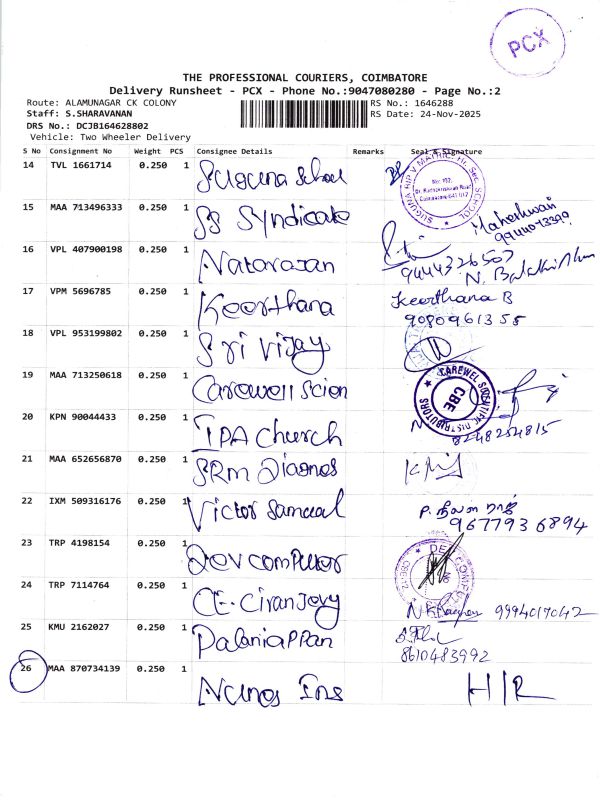 PCX
THE PROFESSIONAL COURIERS, COIMBATORE
Delivery Runsheet - PCX - Phone No.:9047080280 - Page No.:2
Route: ALAMUNAGAR CK COLONY RS No.: 1646288
Staff: S.SHARAVANAN RS Date: 24-Nov-2025
DRS No.: DCJB164628802
Vehicle: Two Wheeler Delivery
S No Consignment No Weight PCS Consignee Details Remarks Seal & Signature
14 TVL 1661714 0.250 1 Suguna School
15 MAA 713496333 0.250 1 SS Syndicate Maheshwari
16 VPL 407900198 0.250 1 Natarasan 9444326507
17 VPM 5696785 0.250 1 Keerthana Keerthana B
9080961355
18 VPL 953199802 0.250 1 Sri Vijay
19 MAA 713250618 0.250 1 Carewell Scien CBE
20 KPN 90044433 0.250 1 IPA Church 8248254815
21 MAA 652656870 0.250 1 SRM Diagnos
22 IXM 509316176 0.250 1 Victor Samual
9677936894
23 TRP 4198154 0.250 1 Dev computer
24 TRP 7114764 0.250 1 CE. Ciranjevy 9994017042
25 KMU 2162027 0.250 1 Palaniappan
8610483992
26 MAA 870734139 0.250 1 Nanos Ins H/R